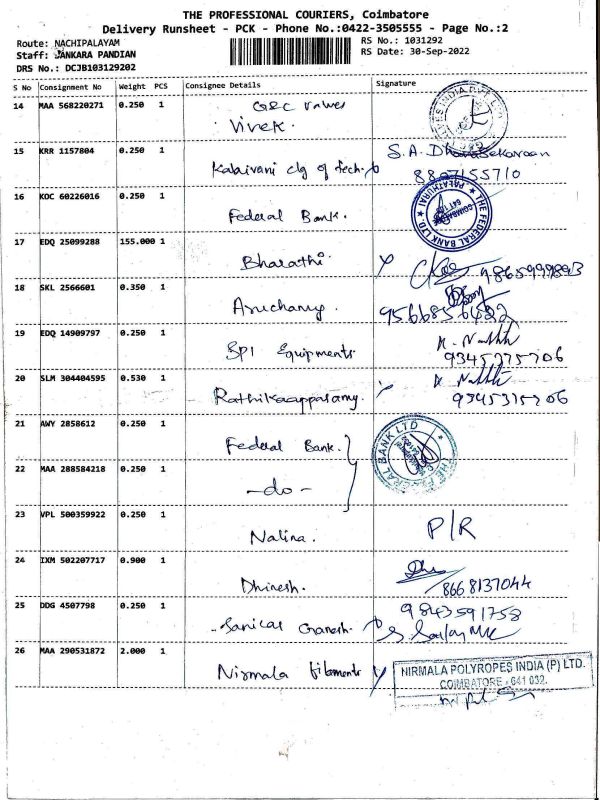 THE PROFESSIONAL COURIERS, Coimbatore
Delivery Runsheet - PCK - Phone No.:0422-3505555 - Page No.:2
Route: NACHIPALAYAM
Staff: SANKARA PANDIAN
DRS No.: DCJB103129202
RS No.: 1031292
RS Date: 30-Sep-2022
S No Consignment No Weight PCS Consignee Details Signature
14 MAA 568220271 0.250 1 Valves
Vivek.
15 KRR 1157804 0.250 1 Kalaivani clg of Tech
S.A. Dhanasekaran
8807155710
16 KOC 60226016 0.250 1 Federal Bank.
THE FEDERAL BANK LTD.
17 EDQ 25099288 155.000 1 Bharathi
18 SKL 2566601 0.350 1 Aruchamy.
19 EDQ 14909797 0.250 1 SPI Equipments
20 SLM 304404595 0.530 1
21 AWY 2858612 0.250 1 Federal Bank.
22 MAA 288584218 0.250 1 -do-
23 VPL 500359922 0.250 1 Nalina. P/R
24 IXM 502207717 0.900 1 Dhinesh.
8668137044
25 DDG 4507798 0.250 1 Ganesh.
9843591758
26 MAA 290531872 2.000 1 Nirmala filaments
NIRMALA POLYROPES INDIA (P) LTD.
COIMBATORE - 641 032.